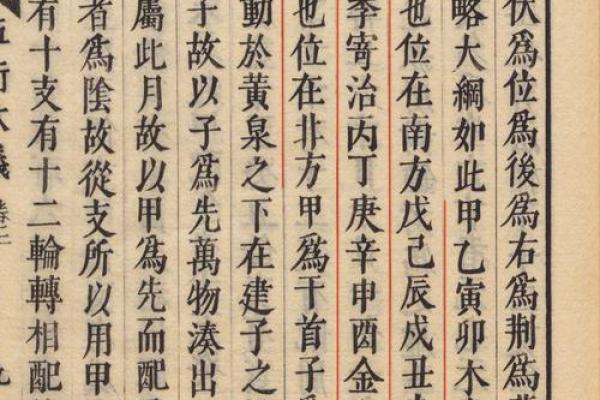 伏爲位爲後爲右爲荆爲
略大綱如此甲乙寅卯木
也位在南方戊己辰戌丑
季寄治丙丁庚辛申酉金
也位在非方甲爲干首子
動於黃泉之下在建子之
子故以子爲先萬物湊出
屬此月故以甲爲先而配
者爲陰故從支所以用甲
有十支有十二輪轉相配
五行大義